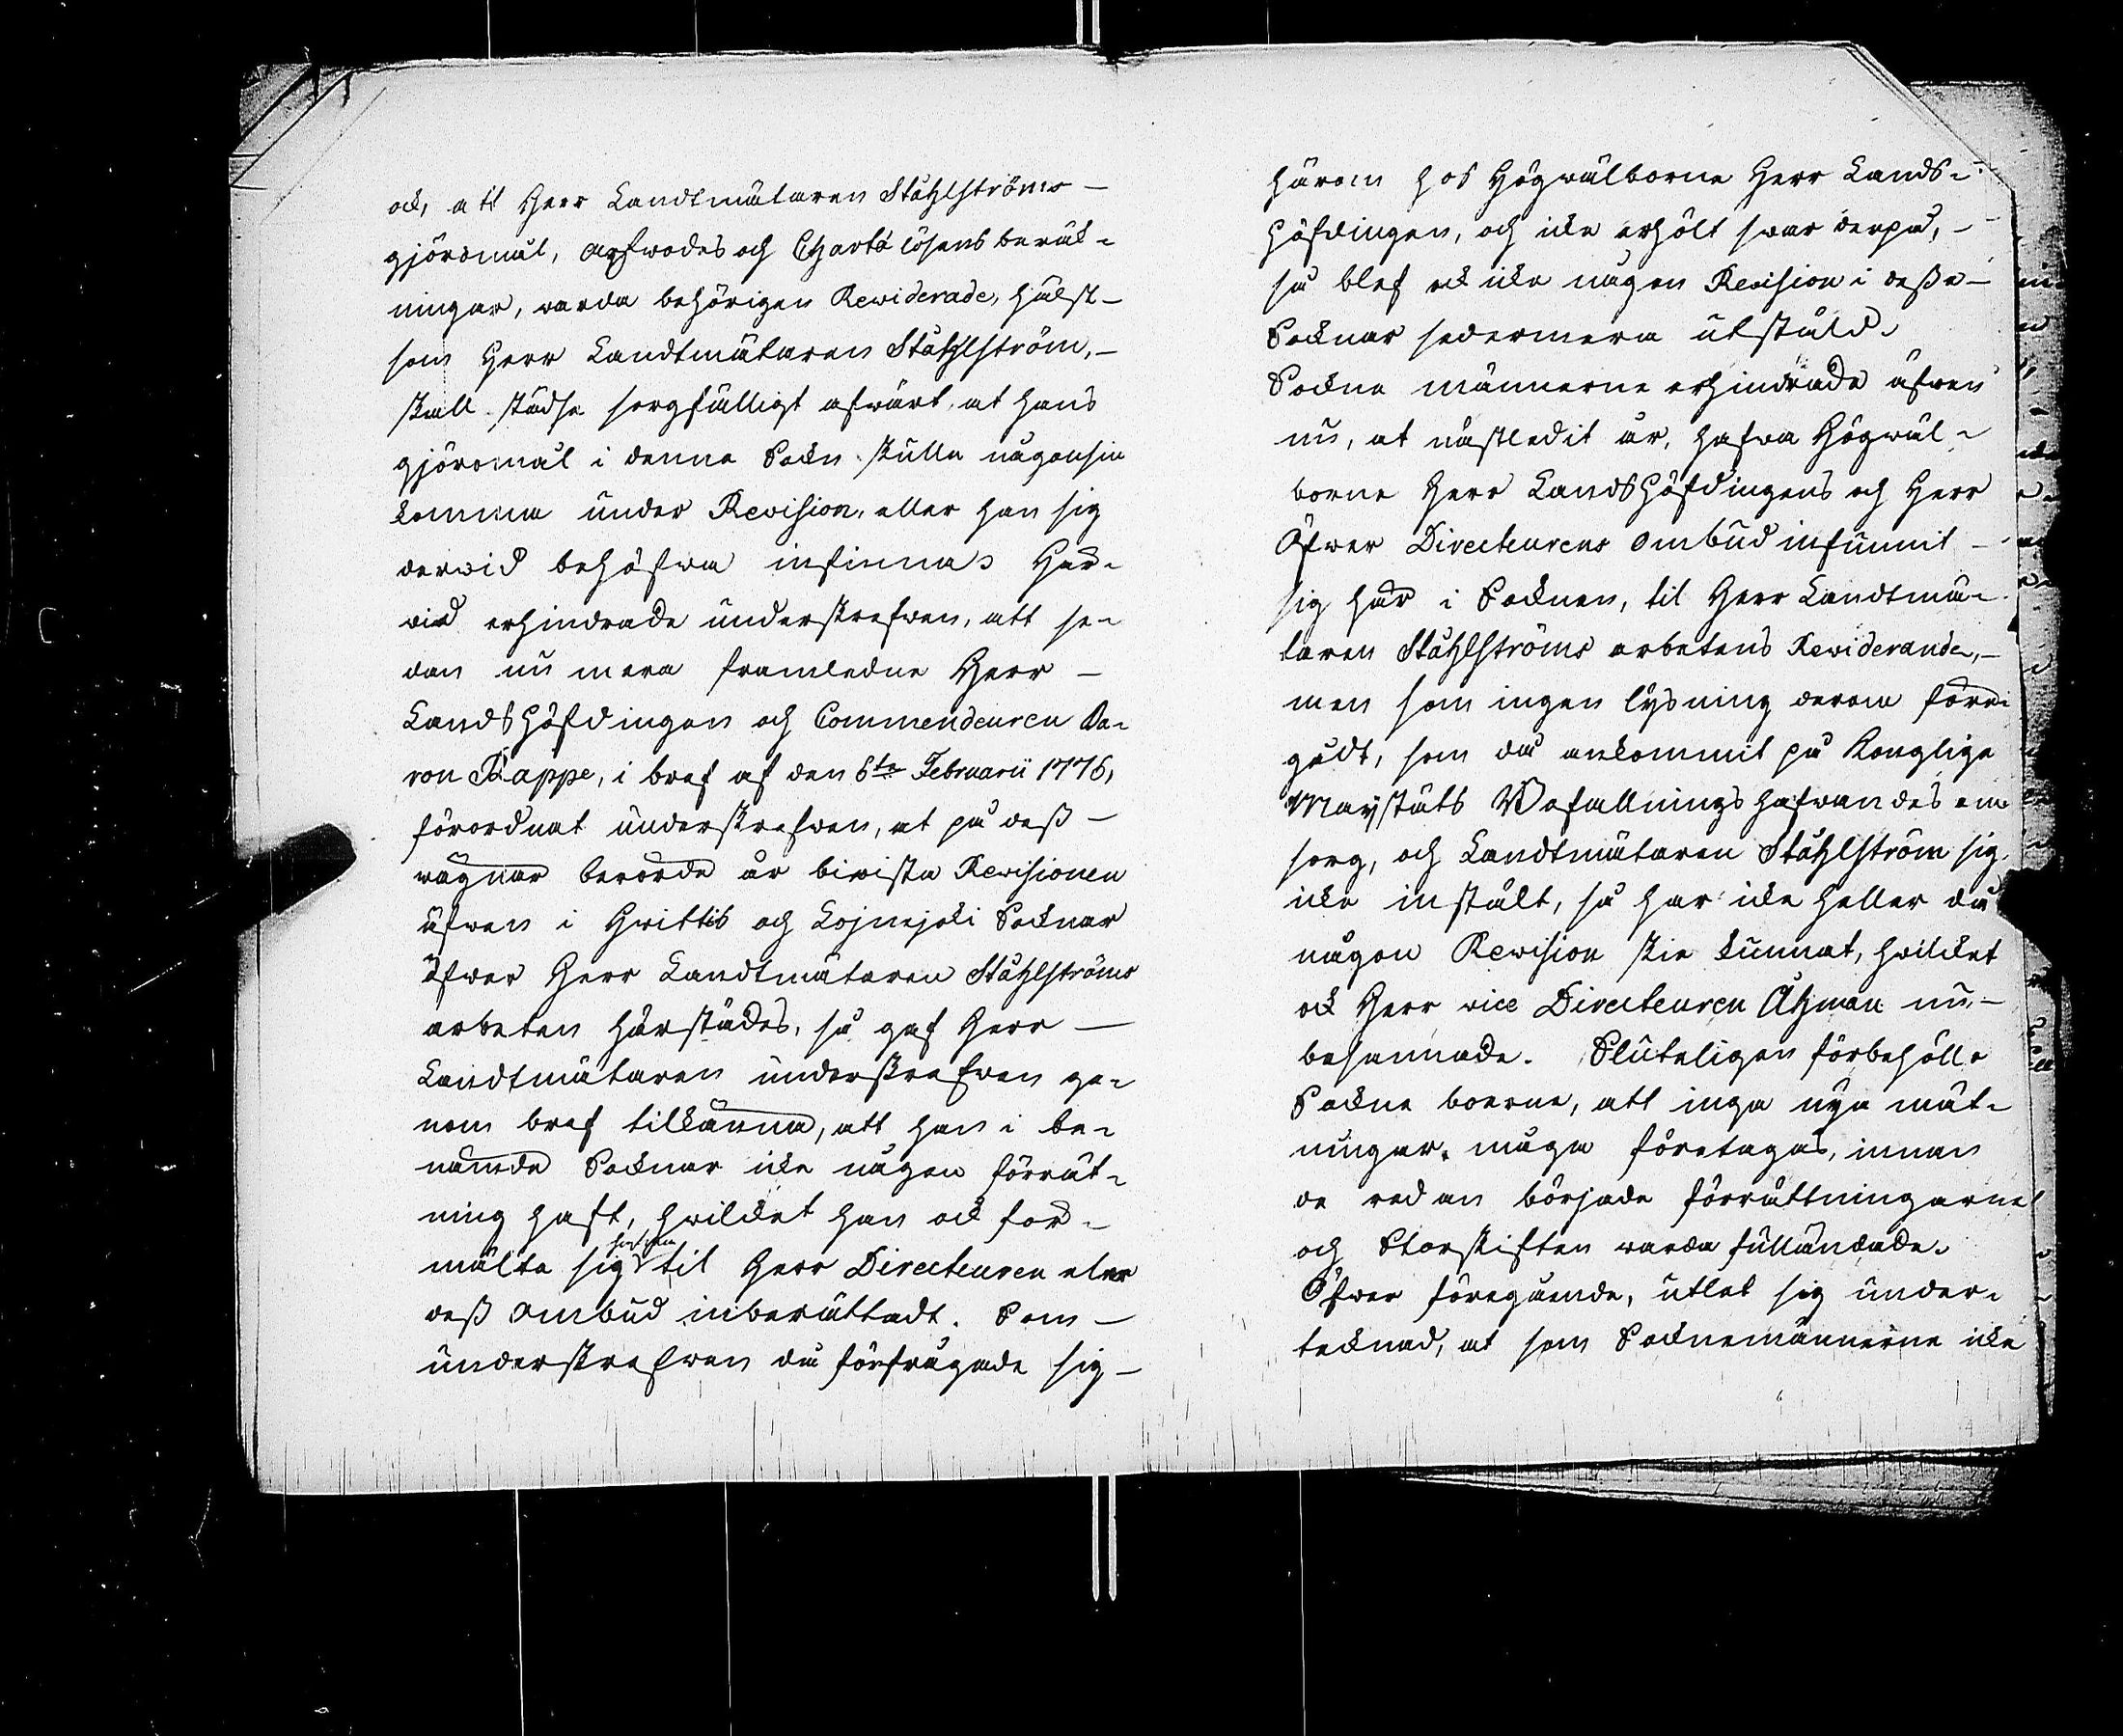 ock, att Herr Landtmätaren Ståhlströms -
giöromål, Arfwodes och Charte lösens beräk-
ningar, warda behörigen Rewiderade, hälst -
som Herr Landtmätaren Ståhlström, -
skall städse sorgfälligt afwärt, at hans
giöromål i denna Sockn skulle någonsin
komma under Revision, eller han sig
derwid behöfwa infinna. Här-
wid erhindrade underskrefwen, att se-
dan nu mera framledne Herr -
Landshöfdingen och Commendeuren Ba-
ron Rappe, i bref af den 6te Februarii 1776,
förordnat underskrefwen, at på deß -
wägnar berörde år biwista Rewisionen
äfwen i Hvittis och Loimjoki Socknar
öfwer Herr Landtmätaren Ståhlströms
arbeten härstädes, så gaf Herr -
Landtmätaren underskrefwen ge-
nom bref tilkänna, att han i be-
nämde Socknar icke någon förrät-
ning haft, hwilcket han ock for-
mälte sig hafwa til Herr Directeuren eler
deß Ombud inberättadt. Som -
underskrefwen då förfrågade sig -
härom hos Högwälborne Herr Lands-
höfdingen, och icke erhölt swar derpå, -
så blef ock icke någon Revision i deße -
Socknar sedermera utstäld.
Sockne männerne erhindrade äfwen
nu, at nästledit år, hafwa Högwäl-
borne Herr Landshöfdingens och Herr
Öfwer Directeurens Ombud infunnit -
sig här i Socknen, til Herr Landtmä-
taren Ståhlströms arbetens Rewiderande, -
men som ingen lysning derom före-
gådt, som då ankommit på Kongliga
Mayestäts Befallningshafwandes om-
sorg, och Landtmätaren Ståhlström sig
icke instält, så har icke heller då
någon Rewision skie kunnat, hwilcket
ock Herr vice Directeuren Åhman nu -
besannade. Sluteligen förbehölle
Sockne boerne, att inga nya mät-
ningar måga företagas, innan
de redan började förrättningarne
och Storskiften warda fulländade.
Öfwer föregående, utlet sig under-
tecknad, at som Socknemännerne icke